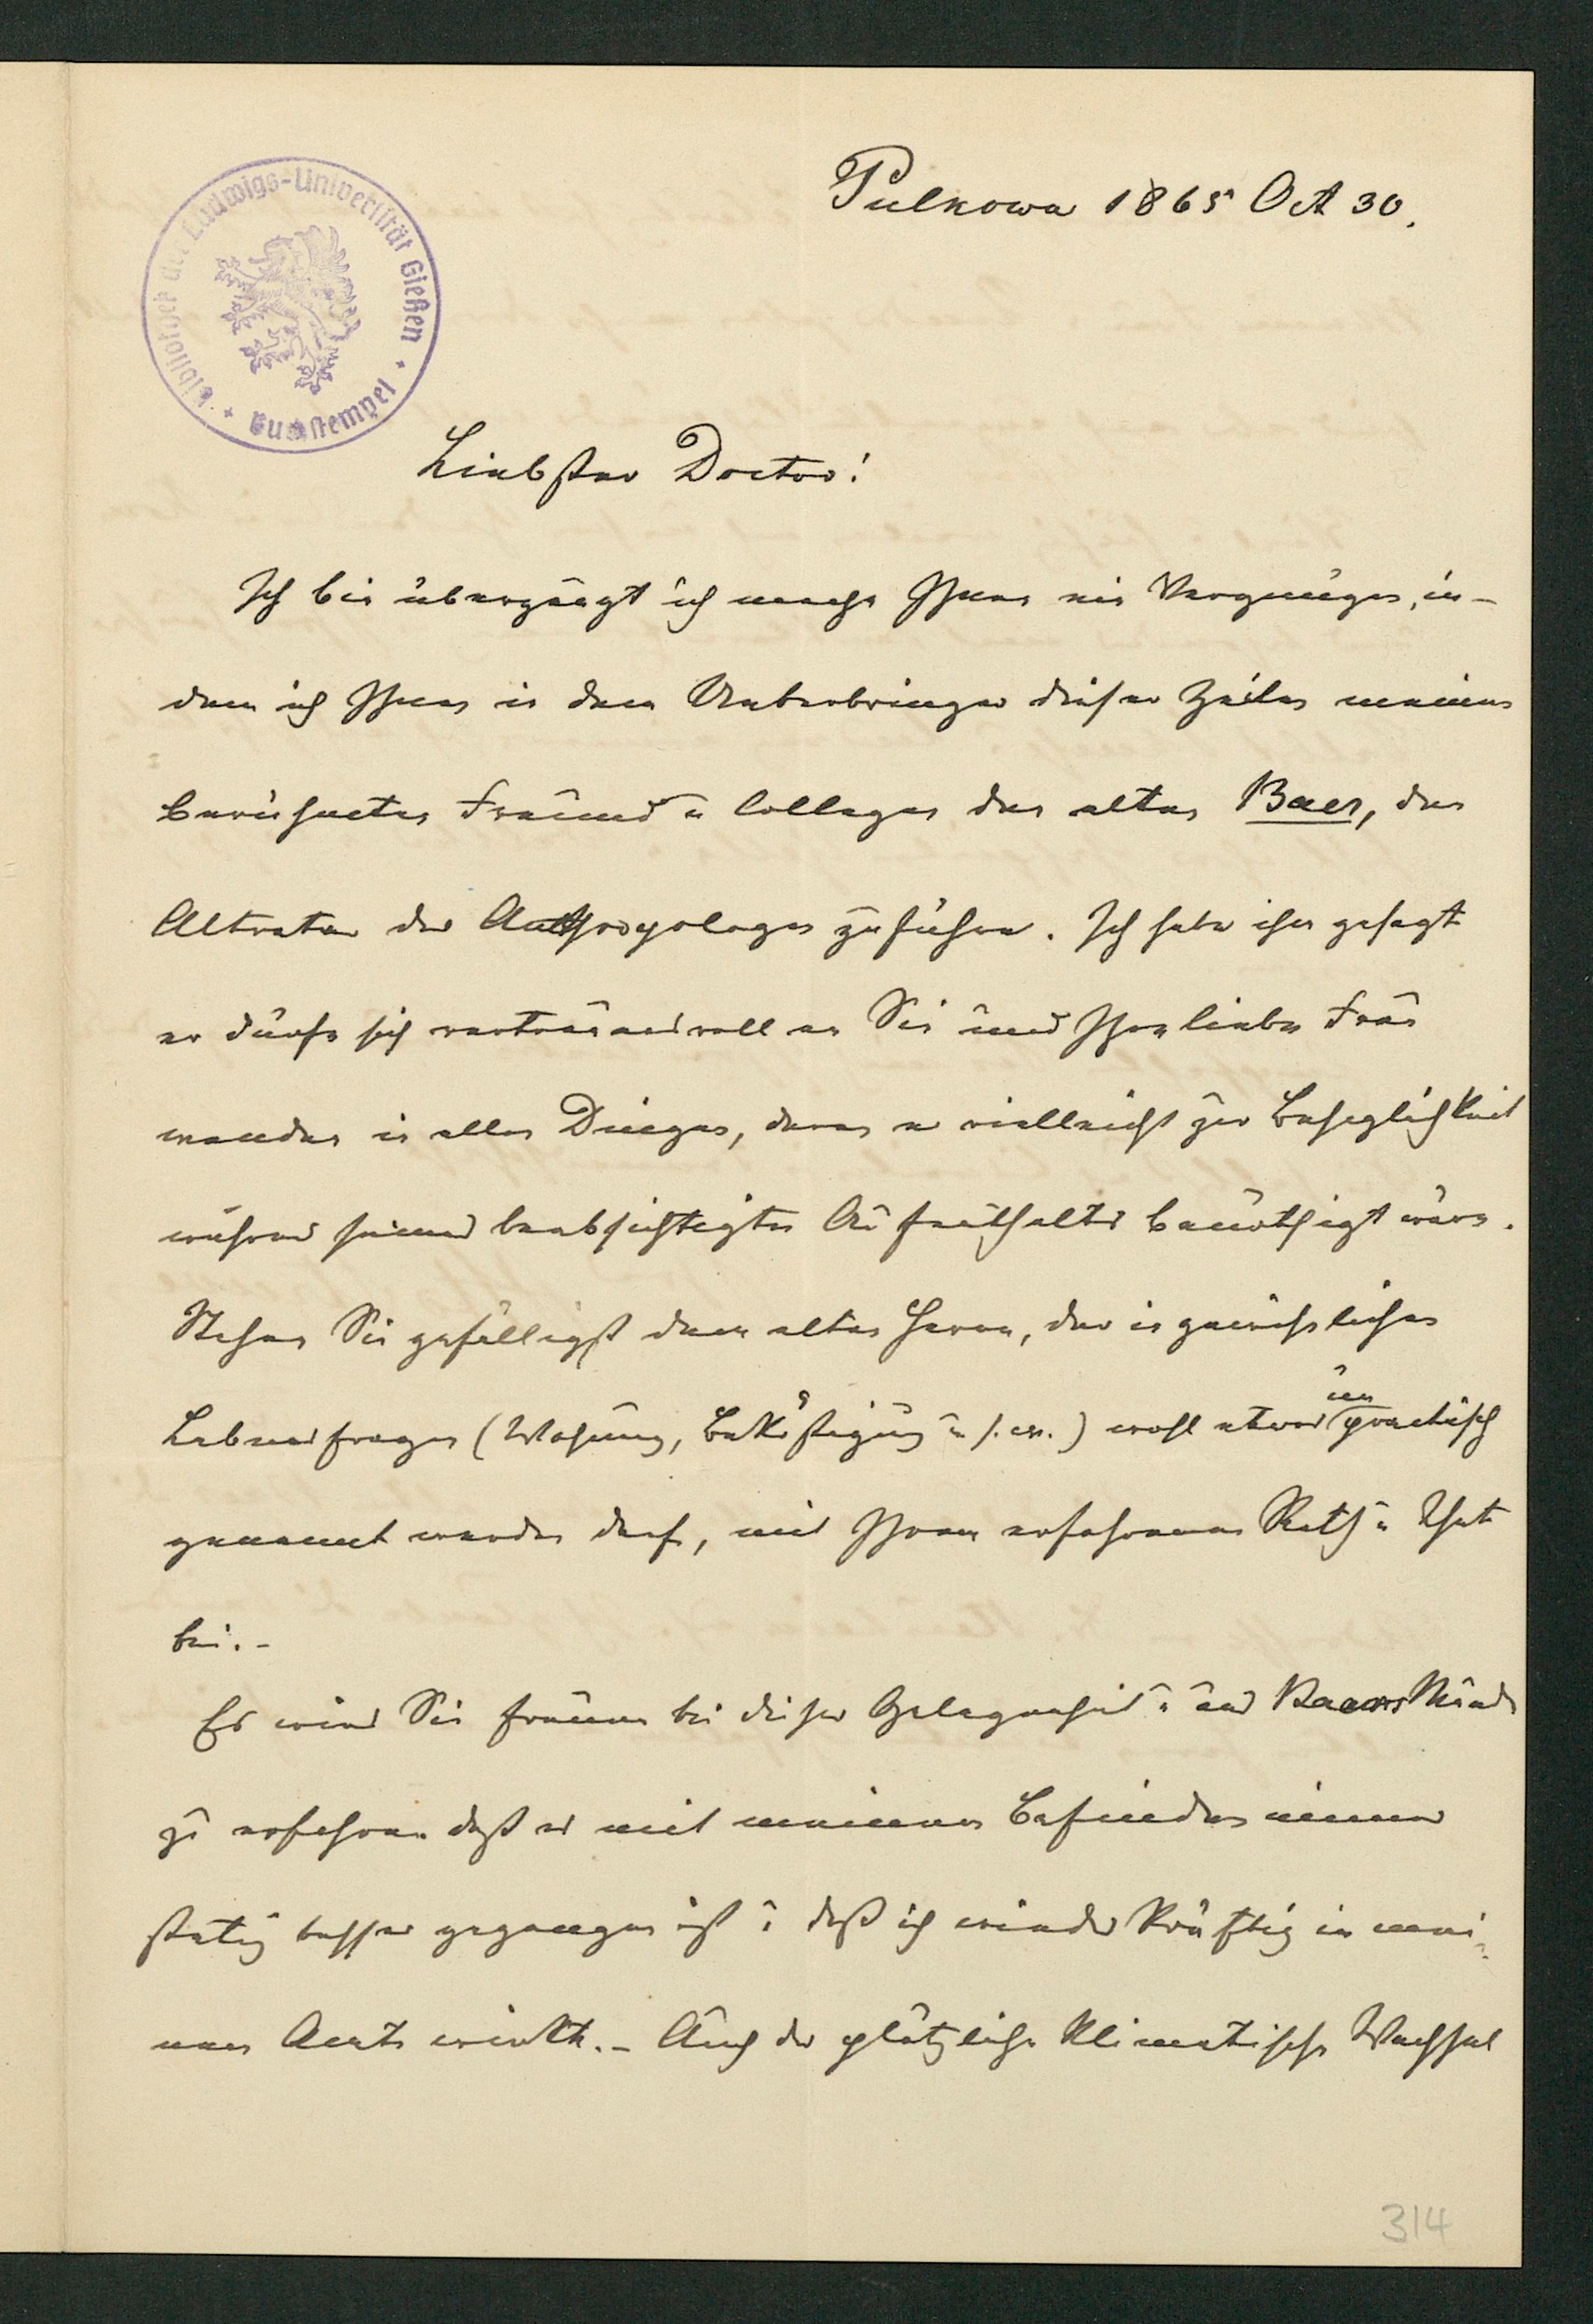 Pulkowa 1865 Oct 30.
Bibliothek der Ludwigs-Universität Gießen
Liebster Doctor!
Ich bin überzeugt ich mache Ihnen ein Vergnügen, in-
dem ich Ihnen in dem Ueberbringer dieser Zeilen meinen
berühmten Freund u Collegen den alten Baer, den
Altvater der Anthropologen zuführe. Ich habe ihm gesagt
er dürfe sich vertrauensvoll an Sie und Ihre liebe Frau
wenden in allen Dingen, deren er vielleicht zur Behaglichkeit
während seines beabsichtigten Aufenthaltes benöthigt wäre.
Stehen Sie gefälligst dem alten Herrn, der in gewöhnlichen
Lebensfragen (Wohnung, Beköstigung u. s. w.) wohl etwas unpractisch
genannt werden darf, mit Ihrem erfahrenen Rath u That
bei. -
Es wird Sie freuen bei dieser Gelegenheit u aus Baers Munde
zu erfahren daß es mit meinem Befinden immer
stetig besser gegangen ist u daß ich wieder kräftig in mei-
nem Amte wirke. - Auch der plötzliche klimatische Wechsel
314